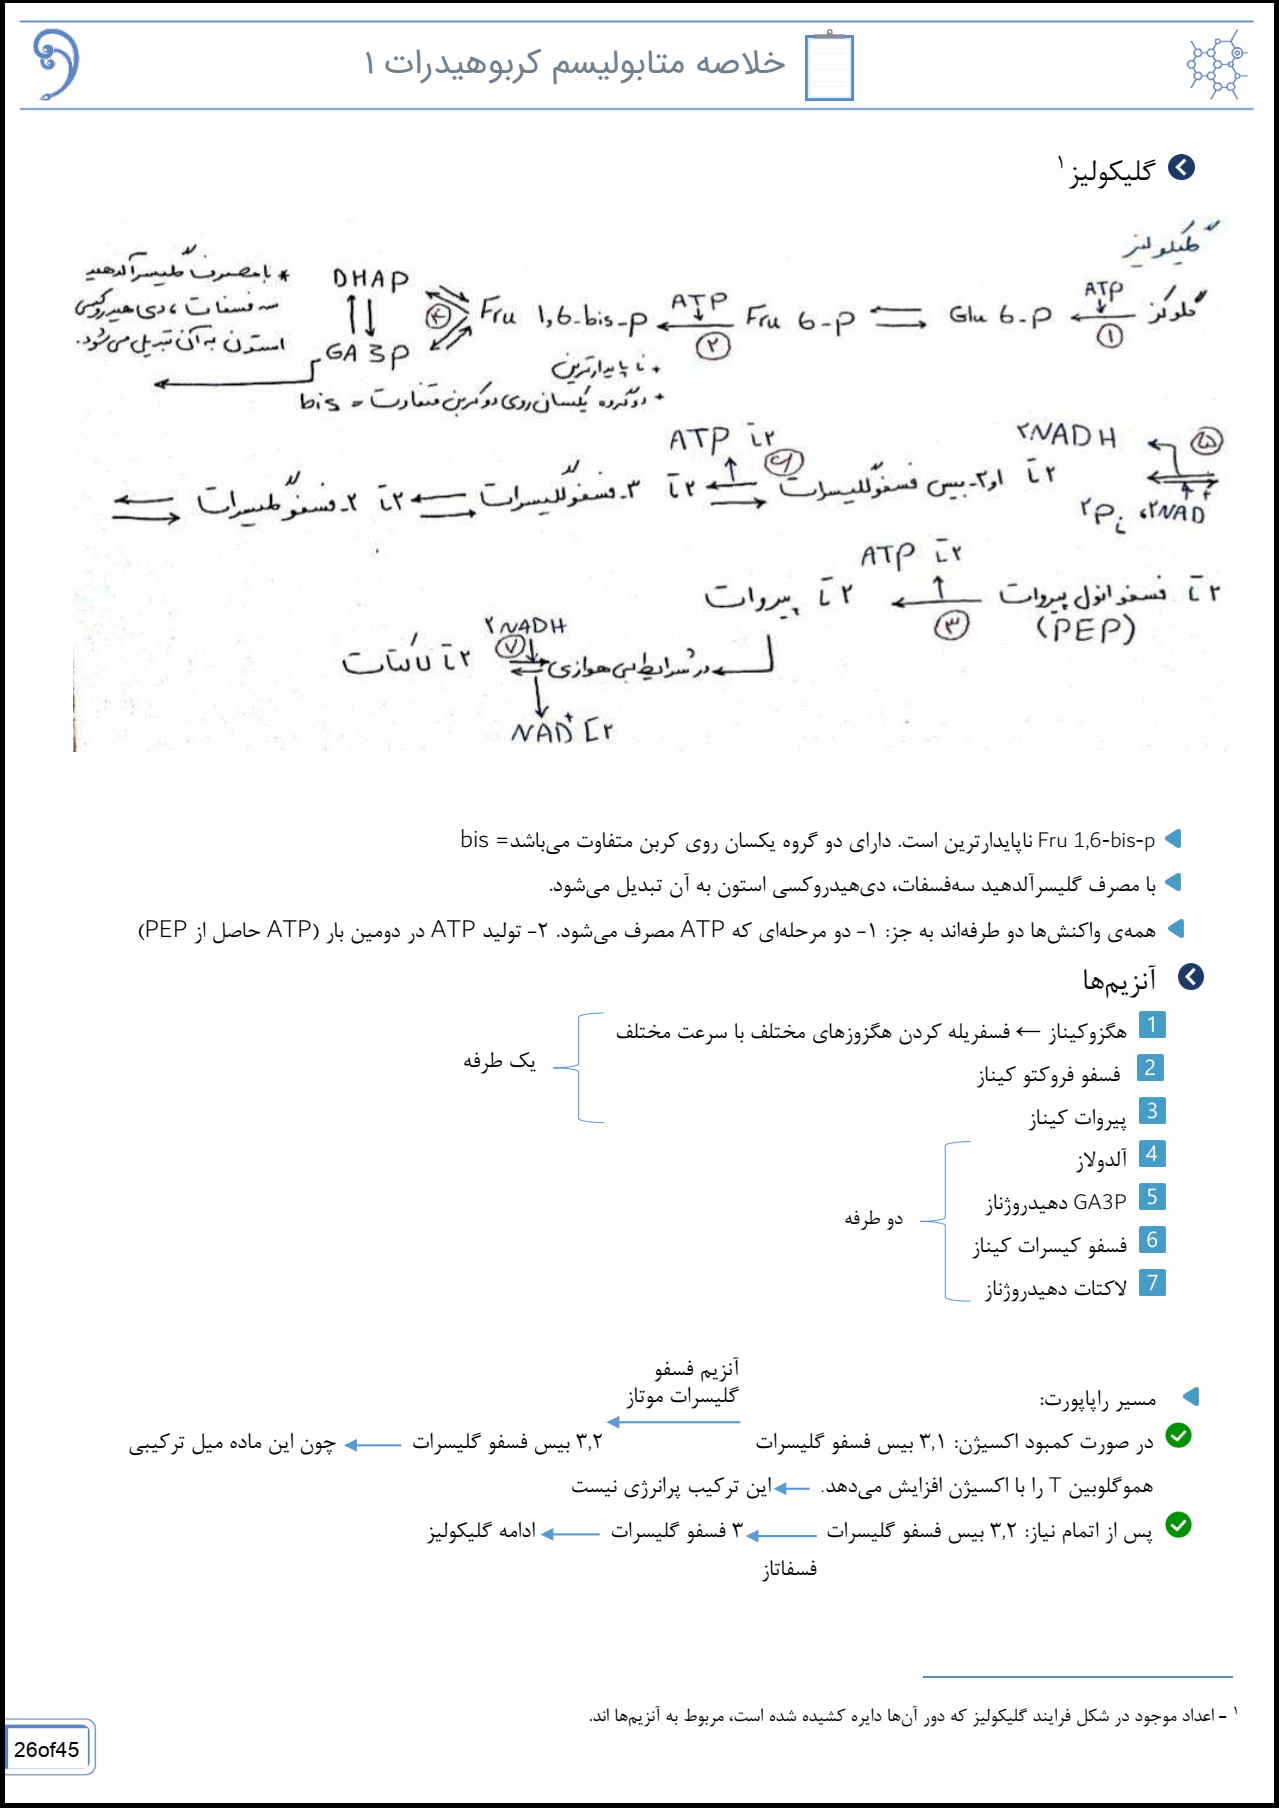 خلاصه متابولیسم کربوهیدرات ۱
گلیکولیز ۱
گلیکولیز
گلوکز ATP ۱ Glu 6-p Fru 6-p ATP ۲ Fru 1,6-bis-p ۴ DHAP GA3p
* با مصرف گلیسرآلدهید
سه فسفات، دی هیدروکسی
استون به آن تبدیل می‌شود.
* ناپایدارترین
* دو گروه یکسان روی دو کربن متفاوت = bis
۵ ۲NADH ۲Pi ، ۲NAD+ ۲ تا ۱و۳-بیس فسفوگلیسرات ۶ ۲ تا ATP ۲ تا ۳-فسفوگلیسرات ۲ تا ۲-فسفوگلیسرات
۲ تا فسفوانول پیروات (PEP) ۳ ۲ تا ATP ۲ تا پیروات
در شرایط بی هوازی ۷ ۲NADH ۲ تا NAD+ ۲ تا لاکتات
Fru 1,6-bis-p ناپایدارترین است. دارای دو گروه یکسان روی کربن متفاوت می‌باشد= bis
با مصرف گلیسرآلدهید سه‌فسفات، دی‌هیدروکسی استون به آن تبدیل می‌شود.
همه‌ی واکنش‌ها دو طرفه‌اند به جز: ۱- دو مرحله‌ای که ATP مصرف می‌شود. ۲- تولید ATP در دومین بار (ATP حاصل از PEP)
آنزیم‌ها
1 هگزوکیناز ← فسفریله کردن هگزوزهای مختلف با سرعت مختلف
یک طرفه
2 فسفو فروکتو کیناز
3 پیروات کیناز
4 آلدولاز
5 GA3P دهیدروژناز
دو طرفه
6 فسفو کیسرات کیناز
7 لاکتات دهیدروژناز
آنزیم فسفو
گلیسرات موتاز
مسیر راپاپورت:
در صورت کمبود اکسیژن: ۳,۱ بیس فسفو گلیسرات ← ۳,۲ بیس فسفو گلیسرات ← چون این ماده میل ترکیبی
هموگلوبین T را با اکسیژن افزایش می‌دهد. ← این ترکیب پرانرژی نیست
پس از اتمام نیاز: ۳,۲ بیس فسفو گلیسرات ← ۳ فسفو گلیسرات ← ادامه گلیکولیز
فسفاتاز
۱ - اعداد موجود در شکل فرایند گلیکولیز که دور آن‌ها دایره کشیده شده است، مربوط به آنزیم‌ها اند.
26of45